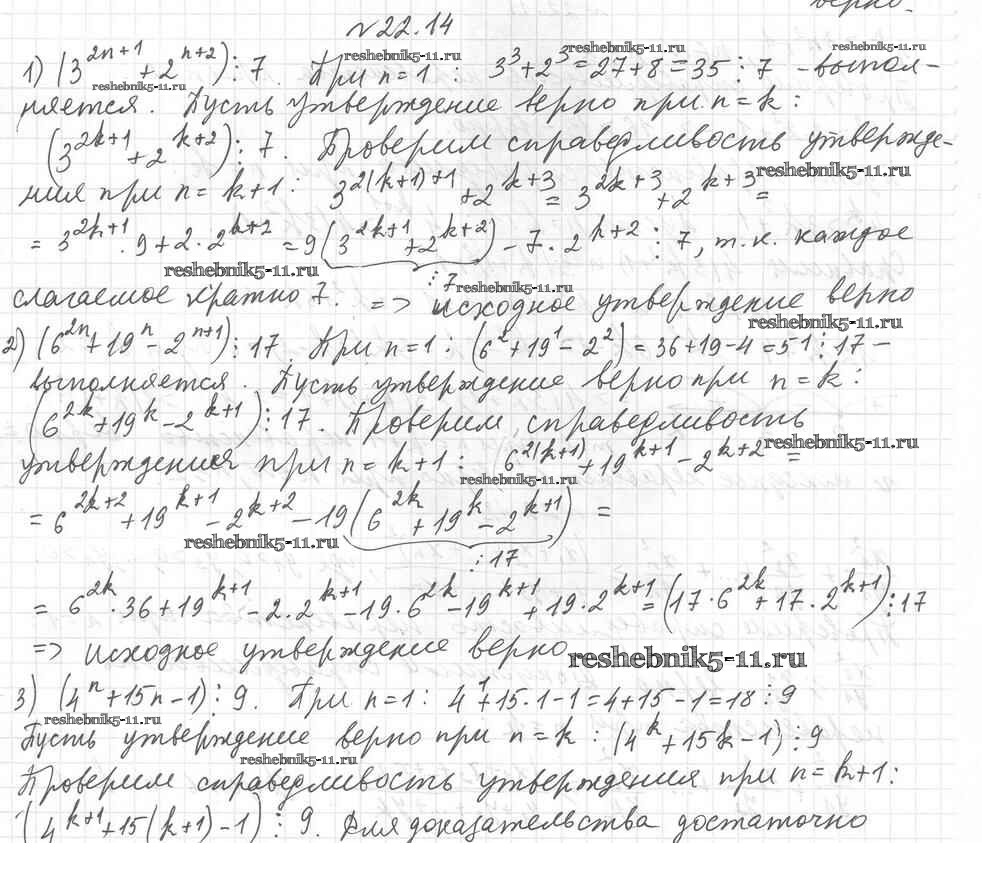 верно.
№22.14
1) (3^{2n+1} + 2^{n+2}) ⋮ 7. При n=1: 3^3+2^3=27+8=35 ⋮ 7 - выпол-
няется. Пусть утверждение верно при n=k:
(3^{2k+1} + 2^{k+2}) ⋮ 7. Проверим справедливость утвержде-
ния при n=k+1: 3^{2(k+1)+1} + 2^{k+3} = 3^{2k+3} + 2^{k+3} =
= 3^{2k+1} · 9 + 2 · 2^{k+2} = 9(3^{2k+1} + 2^{k+2}) - 7 · 2^{k+2} ⋮ 7, т.к. каждое
⋮ 7
слагаемое кратно 7. => исходное утверждение верно
2) (6^{2n} + 19^n - 2^{n+1}) ⋮ 17. При n=1: (6^2+19^1-2^2) = 36+19-4=51 ⋮ 17 -
выполняется. Пусть утверждение верно при n=k:
(6^{2k} + 19^k - 2^{k+1}) ⋮ 17. Проверим справедливость
утверждения при n=k+1: 6^{2(k+1)} + 19^{k+1} - 2^{k+2} =
= 6^{2k+2} + 19^{k+1} - 2^{k+2} - 19(6^{2k} + 19^k - 2^{k+1}) =
⋮ 17
= 6^{2k} · 36 + 19^{k+1} - 2 · 2^{k+1} - 19 · 6^{2k} - 19^{k+1} + 19 · 2^{k+1} = (17 · 6^{2k} + 17 · 2^{k+1}) ⋮ 17
=> исходное утверждение верно
3) (4^n + 15n - 1) ⋮ 9. При n=1: 4^1+15·1-1=4+15-1=18 ⋮ 9
Пусть утверждение верно при n=k: (4^k + 15k - 1) ⋮ 9
Проверим справедливость утверждения при n=k+1:
(4^{k+1} + 15(k+1) - 1) ⋮ 9. Для доказательства достаточно
reshebnik5-11.ru
reshebnik5-11.ru
reshebnik5-11.ru
reshebnik5-11.ru
reshebnik5-11.ru
reshebnik5-11.ru
reshebnik5-11.ru
reshebnik5-11.ru
reshebnik5-11.ru
reshebnik5-11.ru
reshebnik5-11.ru
reshebnik5-11.ru
reshebnik5-11.ru
reshebnik5-11.ru